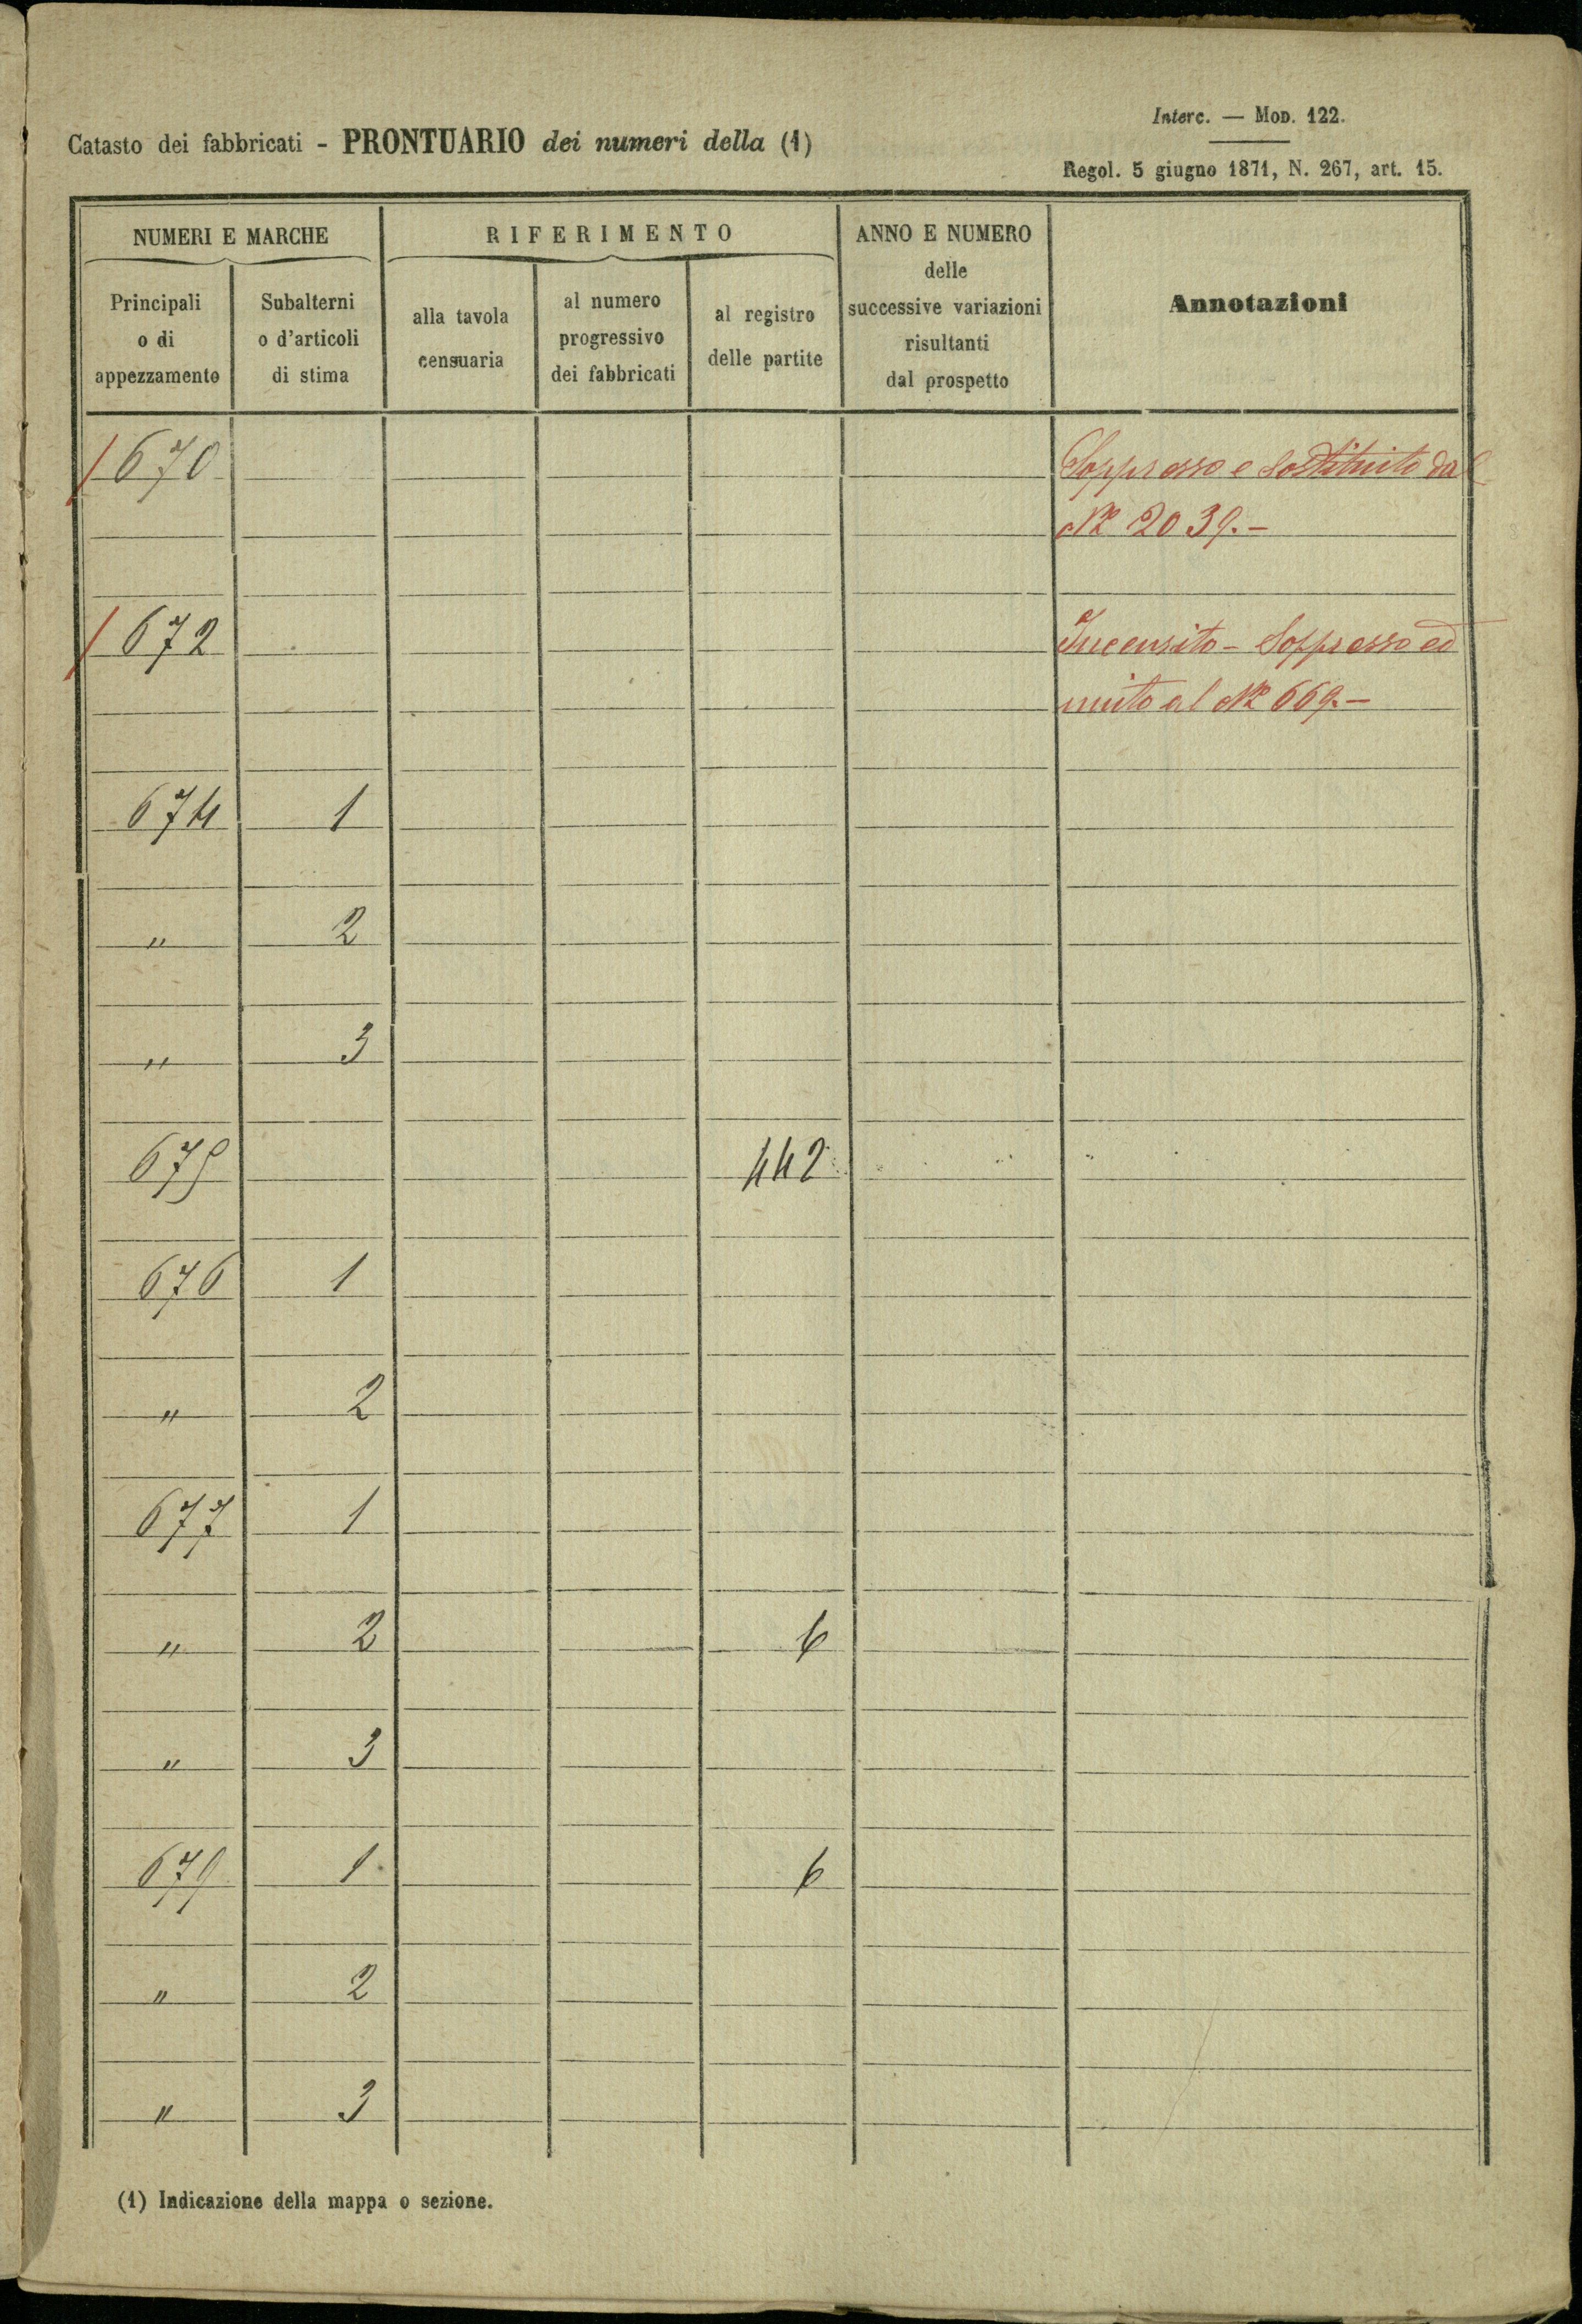 Interc. — Mod. 122.
Catasto dei fabbricati - PRONTUARIO dei numeri della (1)
Regol. 5 giugno 1871, N. 267, art. 15.
NUMERI E MARCHE RIFERIMENTO ANNO E NUMERO delle successive variazioni risultanti dal prospetto Annotazioni
Principali o di appezzamento Subalterni o d'articoli di stima alla tavola censuaria al numero progressivo dei fabbricati al registro delle partite
670 Soppresso e sostituito dal
Nº 2039.-
672 Incensito - Soppresso ed
unito al Nº 669.-
674 1
" 2
" 3
675 442
676 1
" 2
677 1
" 2 6
" 3
679 1 6
" 2
" 3
(1) Indicazione della mappa o sezione.